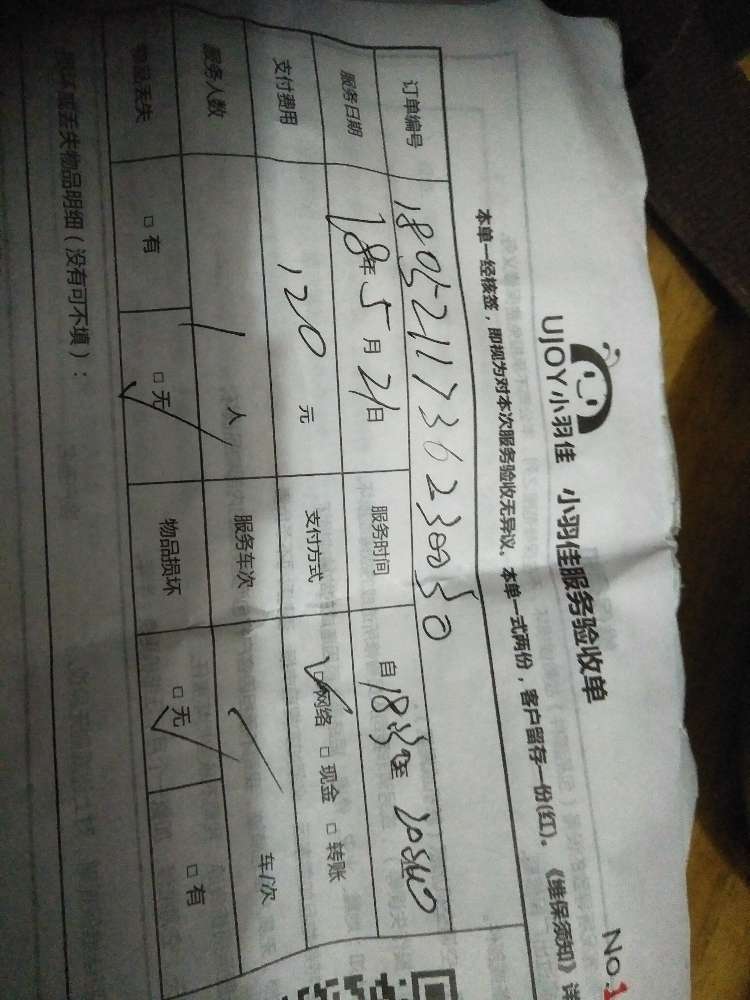 No.1
UJOY小羽佳 小羽佳服务验收单
本单一经核签，即视为对本次服务验收无异议。本单一式两份，客户留存一份(红)。《维保须知》详
订单编号 1805211736230050
服务日期 18年5月21日 服务时间 自18:30至
支付费用 120元 支付方式 ☑网络 □现金 □转账
服务人数 1人 服务车次 车/次
物品丢失 □有 ☑无 物品损坏 ☑无 □有
损坏或丢失物品明细（没有可不填）：